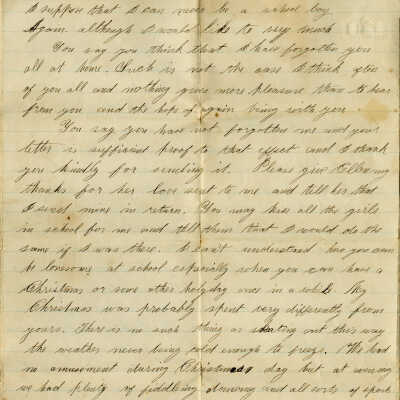 I suppose that I can never be a school boy
Again although I would like to very much
You say you think that I have forgotten you
all at home. Such is not the case I think often
of you all and nothing gives more pleasure than to hear
from you and the hope of again being with you
You say you have not forgotten me and your
letter is sufficient proof to that effect and I thank
you kindly for sending it. Please give Ellen my
thanks for her love sent to me and tell her that
I send mine in return. You may kiss all the girls
in school for me and tell them that I would do the
same if I was there. I can't understand how you can
be lonesome at school especially when you can have a
Christmas or some other holyday once in a while My
Christmas was probably spent very differently from
yours. There is no such thing as skating out this way
the weather never being cold enough to freeze. We had
no amusement during Christmas day but at evening
we had plenty of fiddling dancing and all sorts of sport